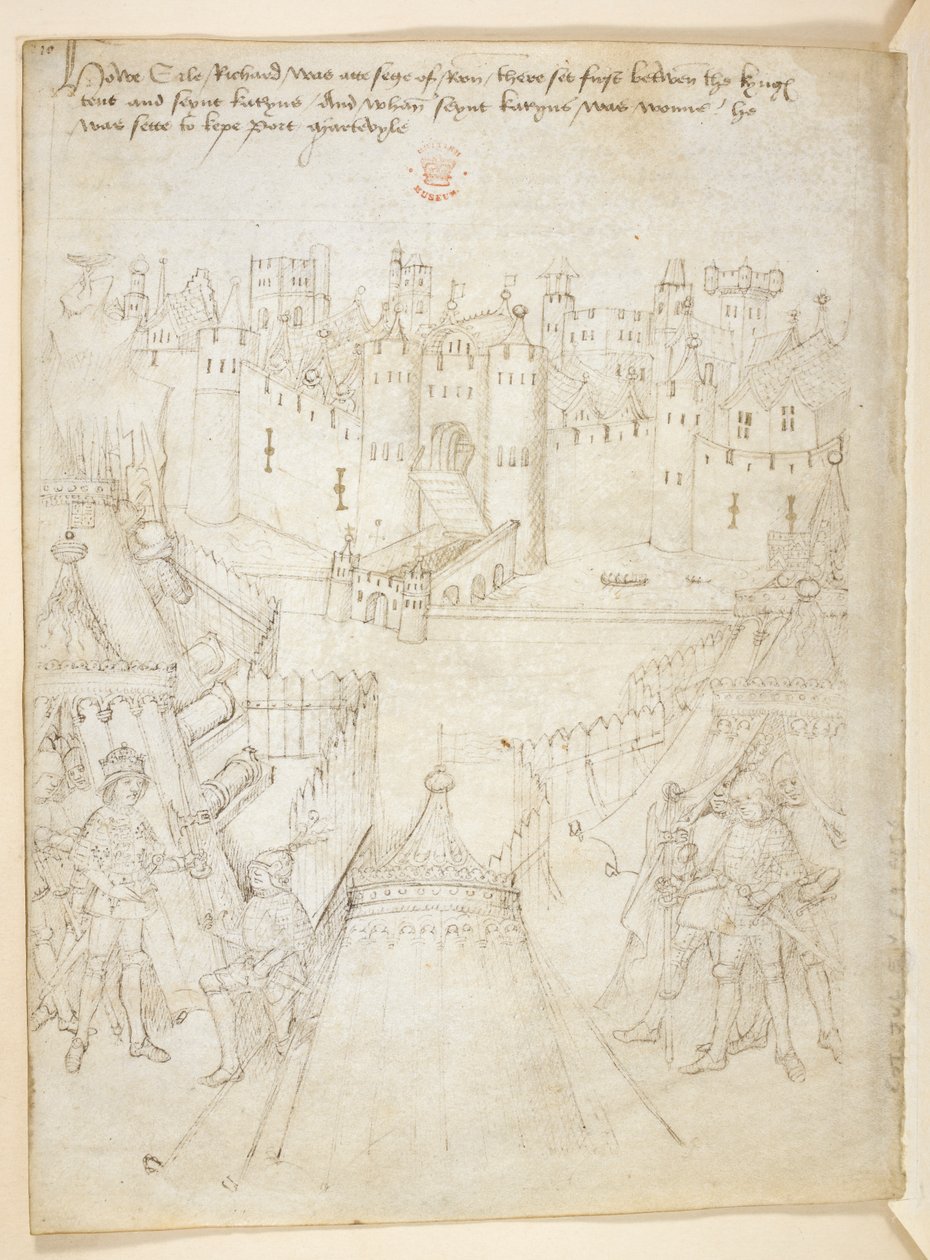 Howe Erle Richard was atte sege of Roon / there set first betwen the kyngs
tent and seynt Katryns / And whan seynt Katryns was wonne / he
was sette to kepe Port Martevyle
BRITISH
MUSEUM